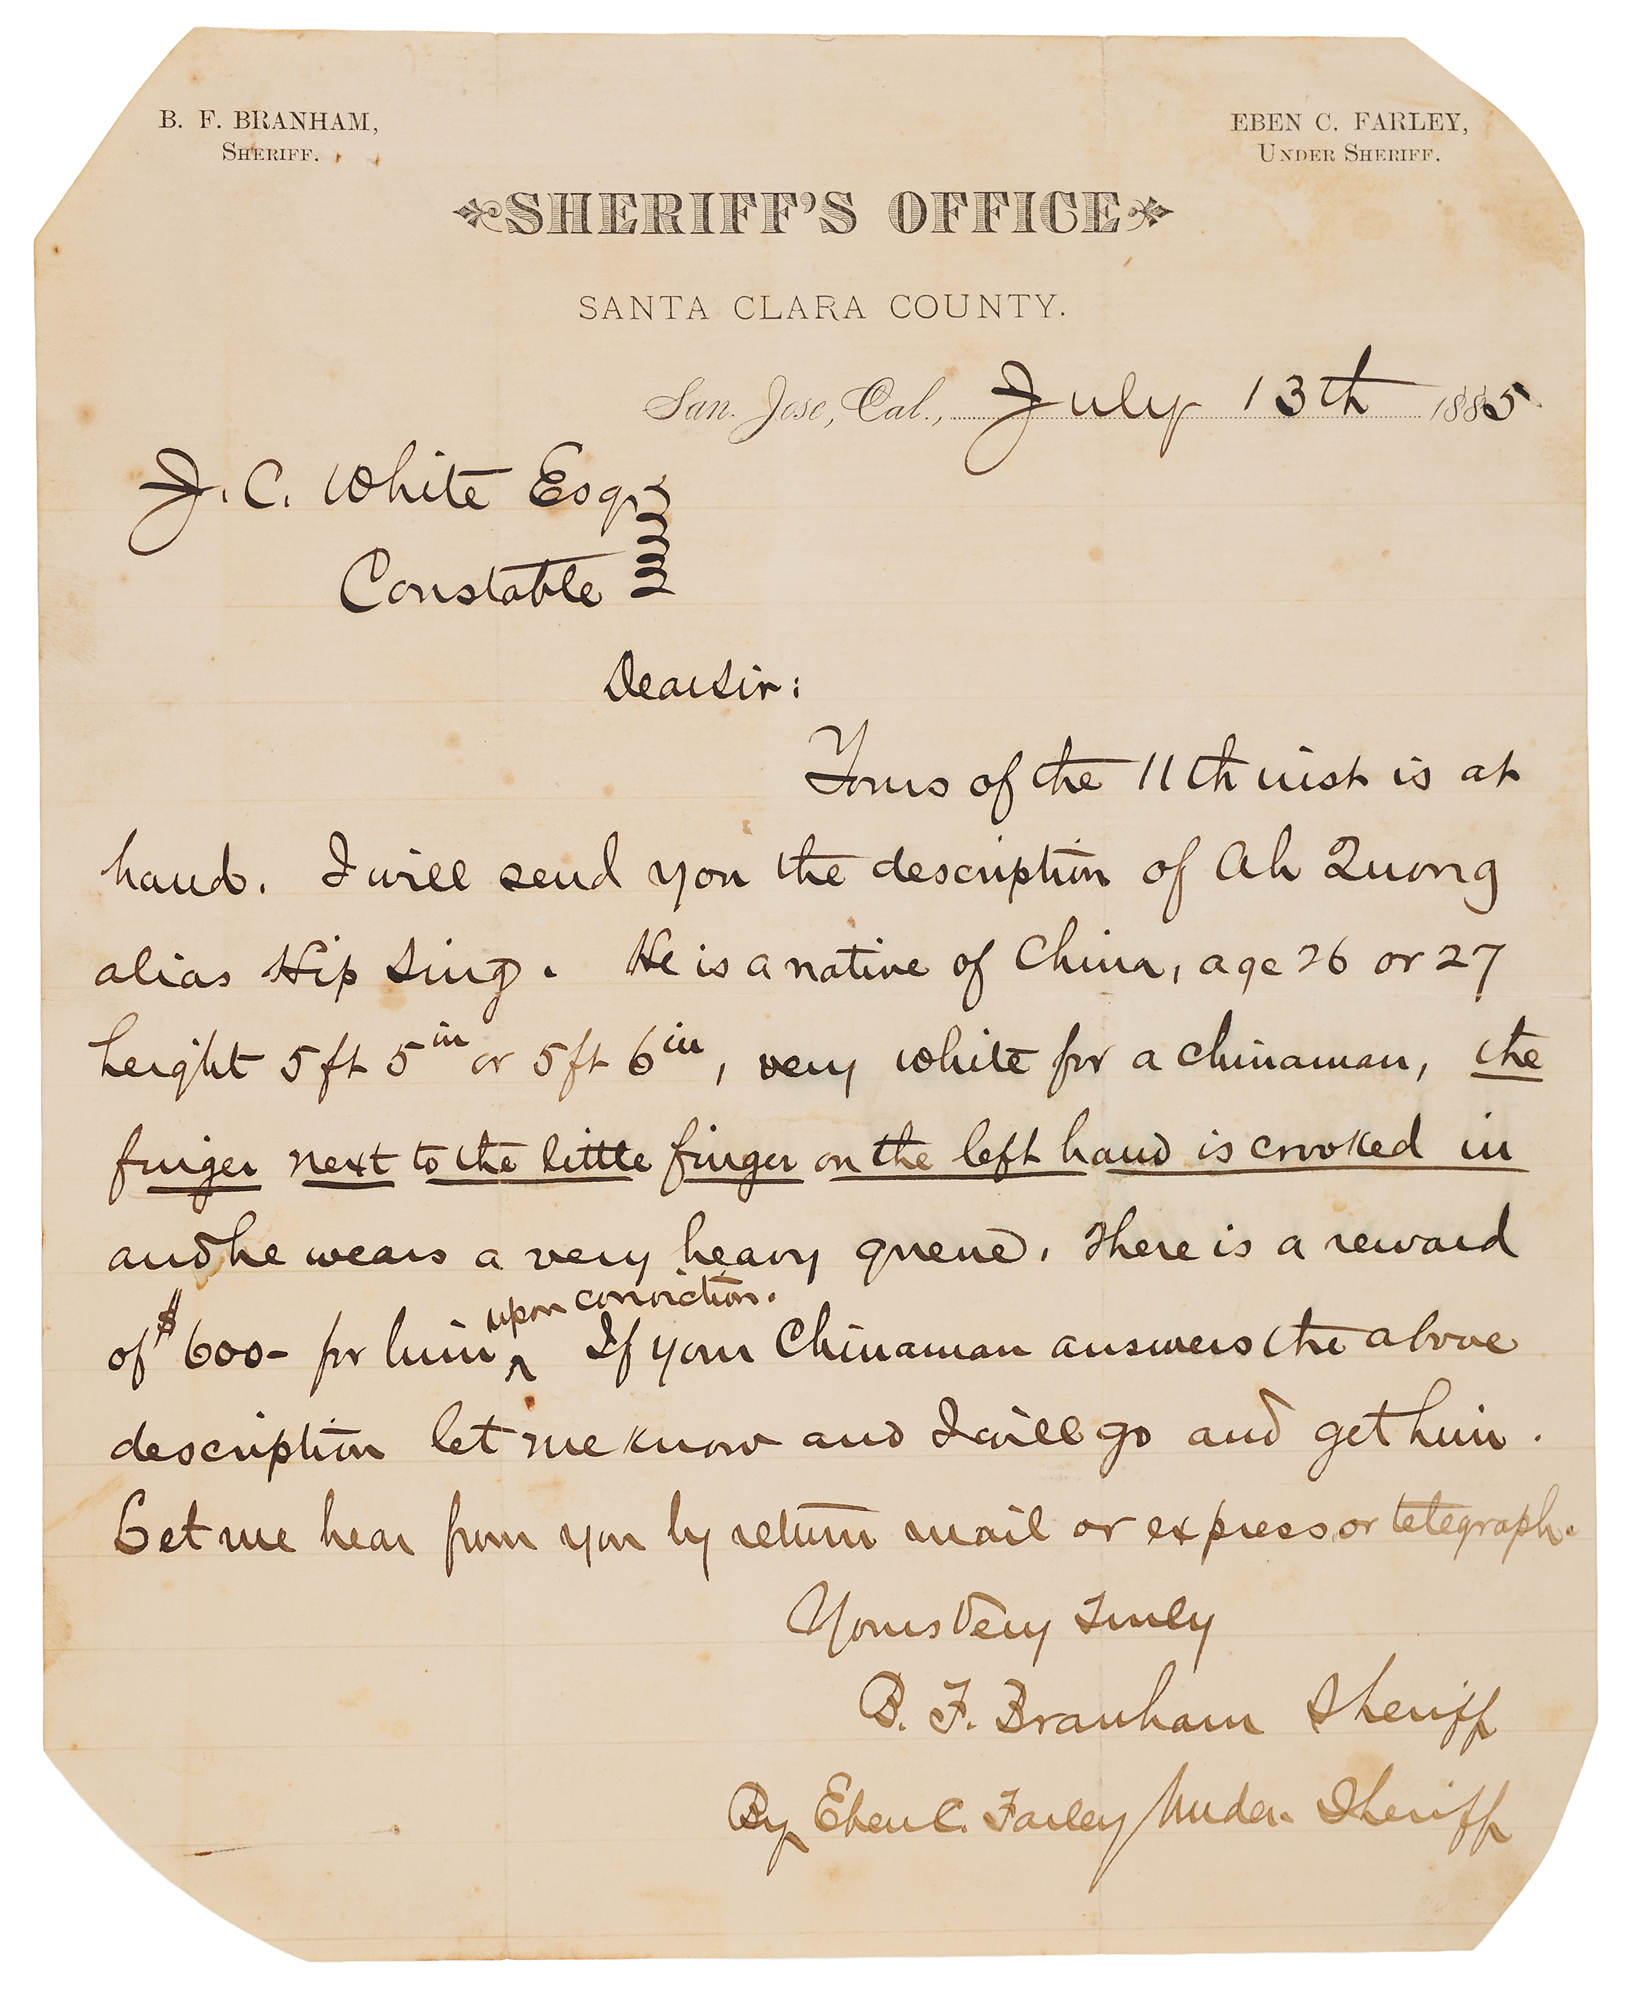 B. F. BRANHAM,
SHERIFF.
EBEN C. FARLEY,
UNDER SHERIFF.
SHERIFF'S OFFICE
SANTA CLARA COUNTY.
San Jose, Cal., July 13th 1885
J. C. White Esq
Constable
Dear Sir:
Yours of the 11th inst is at
hand. I will send you the description of Ah Quong
alias Hip Sing. He is a native of China, age 26 or 27
height 5 ft 5 in or 5 ft 6 in, very white for a chinaman, the
finger next to the little finger on the left hand is crooked in
and he wears a very heavy queue. There is a reward
of $600- for him upon conviction. If your Chinaman answers the above
description let me know and I will go and get him.
Let me hear from you by return mail or express or telegraph.
Yours Very Truly
B. F. Branham Sheriff
By Eben C. Farley Under Sheriff